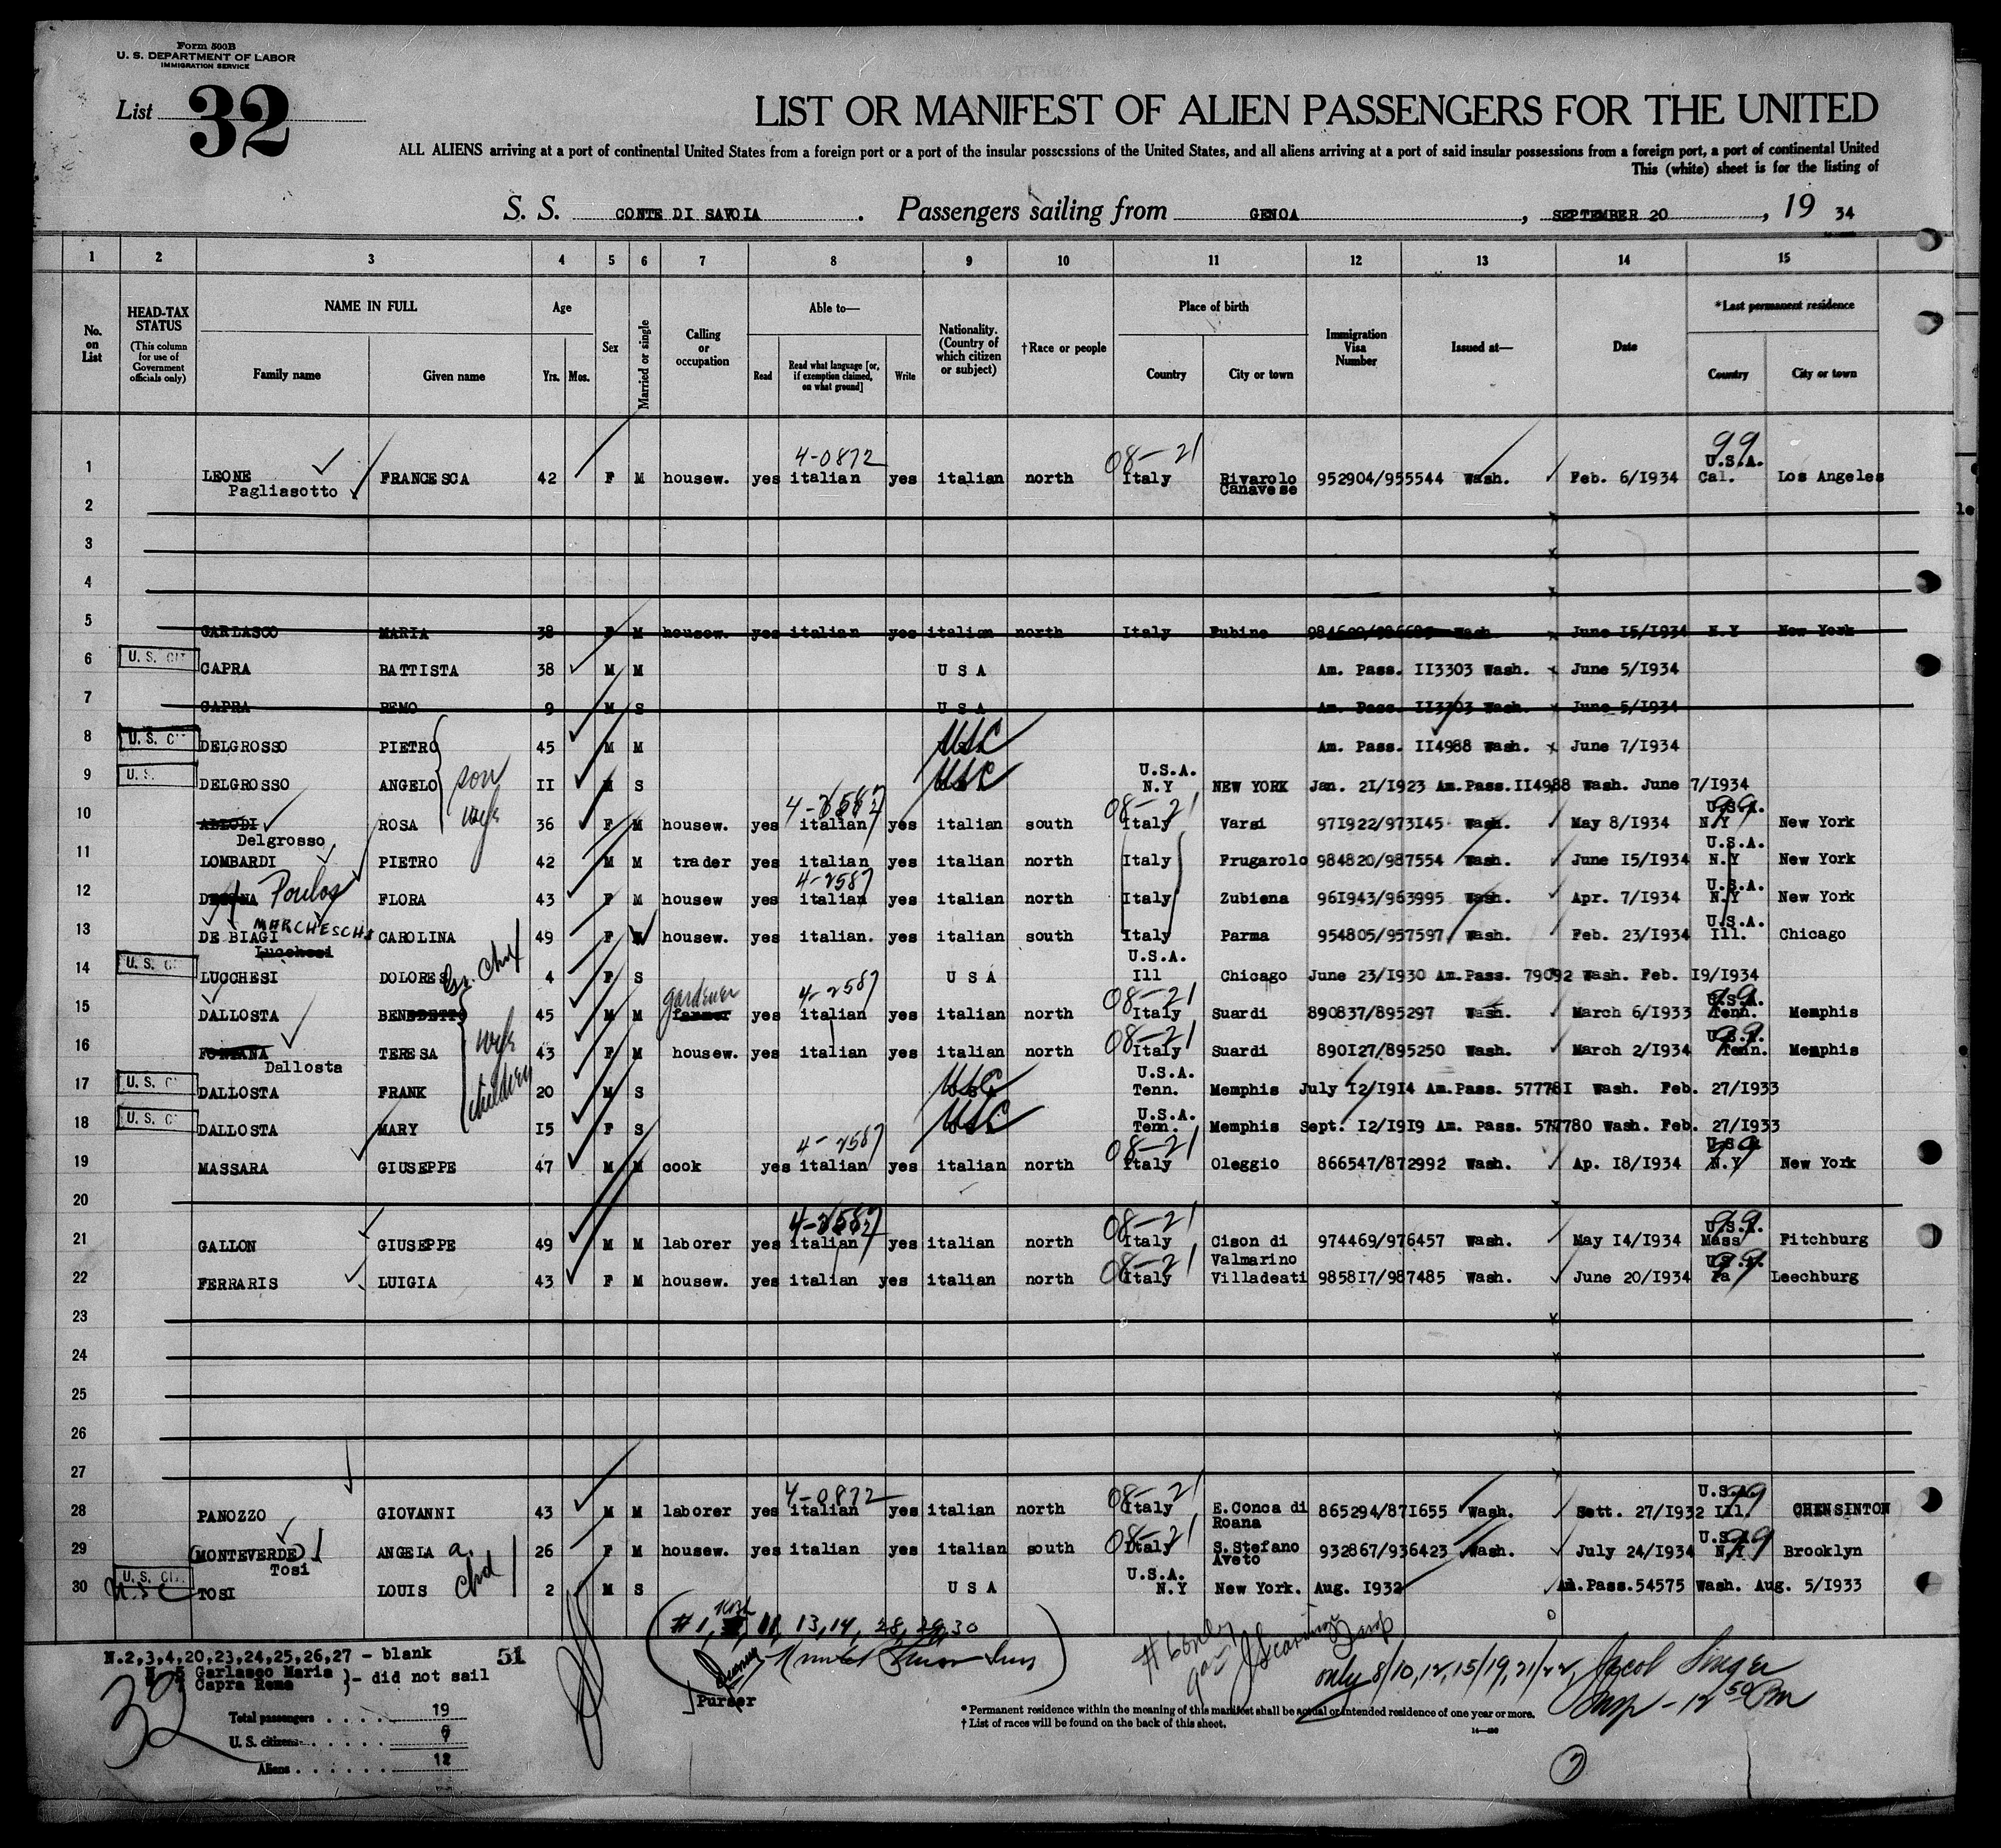 Form 500B
U. S. DEPARTMENT OF LABOR
IMMIGRATION SERVICE
List 32
LIST OR MANIFEST OF ALIEN PASSENGERS FOR THE UNITED
ALL ALIENS arriving at a port of continental United States from a foreign port or a port of the insular possessions of the United States, and all aliens arriving at a port of said insular possessions from a foreign port, a port of continental United
This (white) sheet is for the listing of
S. S. CONTE DI SAVOIA . Passengers sailing from GENOA , SEPTEMBER 20 , 19 34
1 2 3 4 5 6 7 8 9 10 11 12 13 14 15
No. on List
HEAD-TAX STATUS (This column for use of Government officials only)
NAME IN FULL
Family name Given name
Age
Yrs. Mos.
Sex
Married or single
Calling or occupation
Able to—
Read Read what language [or, if exemption claimed, on what ground] Write
Nationality. (Country of which citizen or subject)
†Race or people
Place of birth
Country City or town
Immigration Visa Number
Issued at—
Date
*Last permanent residence
Country City or town
4-0872 08-21 99
1 LEONE FRANCESCA 42 F M housew. yes italian yes italian north Italy Rivarolo Canavese 952904/955544 Wash. Feb. 6/1934 U.S.A. Cal. Los Angeles
Pagliasotto
2
3
4
5 GARLASCO MARIA 38 F M housew. yes italian yes italian north Italy Fubine Wash. June 15/1934 N.Y New York
6 U. S. CIT CAPRA BATTISTA 38 M M U S A Am. Pass. II3303 Wash. June 5/I934
7 CAPRA REMO 9 M S U S A Am. Pass. II3303 Wash. June 5/I934
8 U. S. CI DELGROSSO PIETRO 45 M M USC Am. Pass. II4988 Wash. June 7/I934
9 U. S. DELGROSSO ANGELO son II M S USC U.S.A. N.Y NEW YORK Jan. 2I/I923 Am.Pass.II4988 Wash. June 7/I934
4-2587 08-21 99
10 ALLODI ROSA wife 36 F M housew. yes italian yes italian south Italy Varsi 97I922/973I45 Wash. May 8/I934 U.S.A. N.Y New York
Delgrosso
11 LOMBARDI PIETRO 42 M M trader yes italian yes italian north Italy Frugarolo 984820/987554 Wash. June I5/I934 U.S.A. N.Y New York
4-2587
12 Poulos FLORA 43 F M housew yes italian yes italian north Italy Zubiena 96I943/963995 Wash. Apr. 7/I934 U.S.A. N.Y New York
MARCHESCHI
13 DE BIAGI CAROLINA 49 F housew. yes italian. yes italian south Italy Parma 954805/957597 Wash. Feb. 23/I934 U.S.A. Ill. Chicago
Lucchesi
14 U. S. C LUCCHESI DOLORES Gr. Chd 4 F S U S A U.S.A. Ill Chicago June 23/I930 Am.Pass. 79092 Wash. Feb. I9/I934
gardener 4-2587 08-21 99
15 DALLOSTA BENEDETTO 45 M M farmer yes italian yes italian north Italy Suardi 890837/895297 Wash. March 6/I933 U.S.A. Tenn. Memphis
08-21 99
16 FONTANA TERESA wife 43 F M housew. yes italian yes italian north Italy Suardi 890I27/895250 Wash. March 2/I934 U.S.A. Tenn. Memphis
Dallosta
17 U. S. C DALLOSTA FRANK children 20 M S USC U.S.A. Tenn. Memphis July I2/I9I4 Am.Pass. 57778I Wash. Feb. 27/I933
18 U. S. C DALLOSTA MARY I5 F S USC U.S.A. Tenn. Memphis Sept. I2/I9I9 Am. Pass. 577780 Wash. Feb. 27/I933
4-2587 08-21 99
19 MASSARA GIUSEPPE 47 M M cook yes italian yes italian north Italy Oleggio 866547/872992 Wash. Ap. I8/I934 U.S.A. N.Y New York
20
4-2587 08-21 99
21 GALLON GIUSEPPE 49 M M laborer yes italian yes italian north Italy Cison di Valmarino 974469/976457 Wash. May I4/I934 U.S.A. Mass Fitchburg
08-21 99
22 FERRARIS LUIGIA 43 F M housew. yes italian yes italian north Italy Villadeati 9858I7/987485 Wash. June 20/I934 Pa Leechburg
23
24
25
26
27
4-0872 08-21 99
28 PANOZZO GIOVANNI 43 M M laborer yes italian yes italian north Italy E.Conca di Roana 865294/87I655 Wash. Sett. 27/I932 U.S.A. Ill. CHENSINTON
08-21 99
29 (MONTEVERDE) ANGELA a. 26 F M housew. yes italian yes italian south Italy S.Stefano Aveto 932867/936423 Wash. July 24/I934 U.S.A. N.Y Brooklyn
Tosi
30 U. S. CIT USC TOSI LOUIS Chd 2 M S U S A U.S.A. N.Y New York. Aug. I932 Am.Pass.54575 Wash. Aug. 5/I933
N.2,3,4,20,23,24,25,26,27 - blank
N. 5 Garlasco Maria
Capra Remo }- did not sail
51
32
Total passengers 19
U. S. citizens
Aliens 12
#1, 11, 13,14, 28, 29,30
Purser
#6 only
only 8/10, 12, 15/19, 21/22, Jacob Singer
Insp - 12 50 Pm
* Permanent residence within the meaning of this manifest shall be actual or intended residence of one year or more.
† List of races will be found on the back of this sheet.